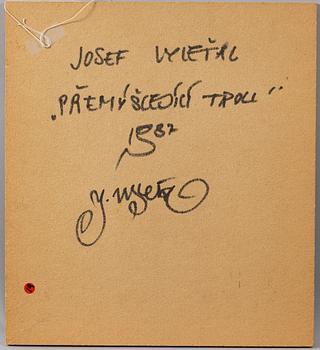 JOSEF VYLEŤAL
„PŘEMÝŠLEJÍCÍ TROLL“
1987
J. Vyleťal